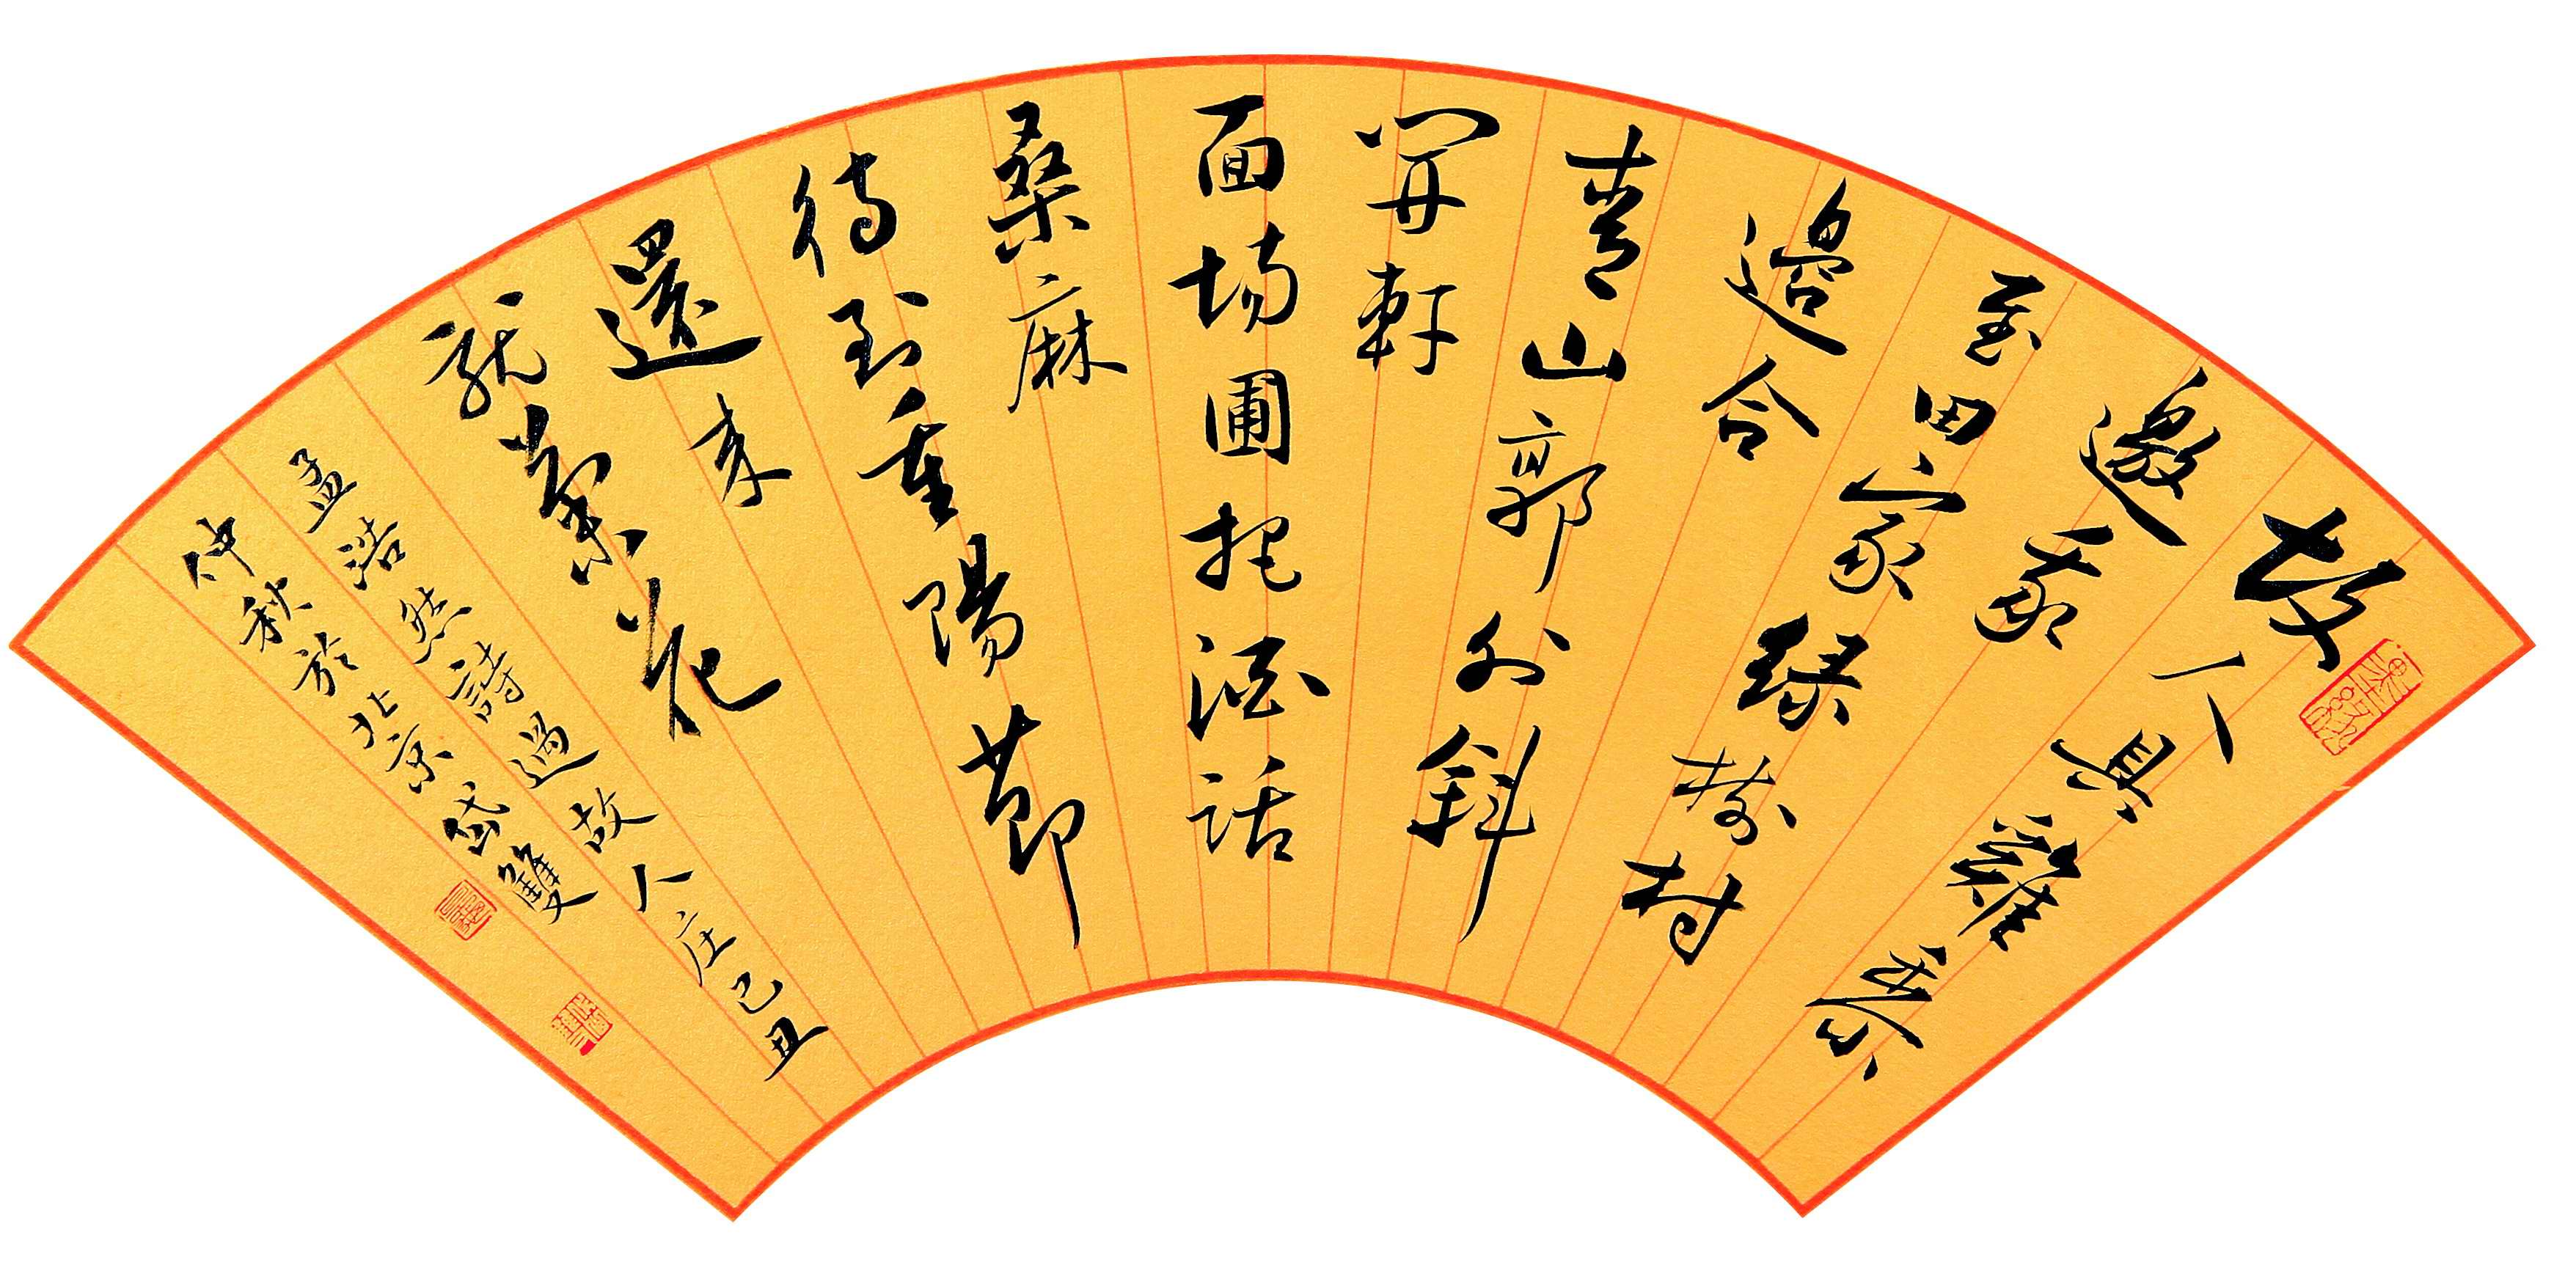 故人具雞黍
邀我
至田家綠樹村
邊合
青山郭外斜
開軒
面場圃把酒話
桑麻
待到重陽節
還來
就菊花
孟浩然詩過故人庄己丑
仲秋於北京岱雙